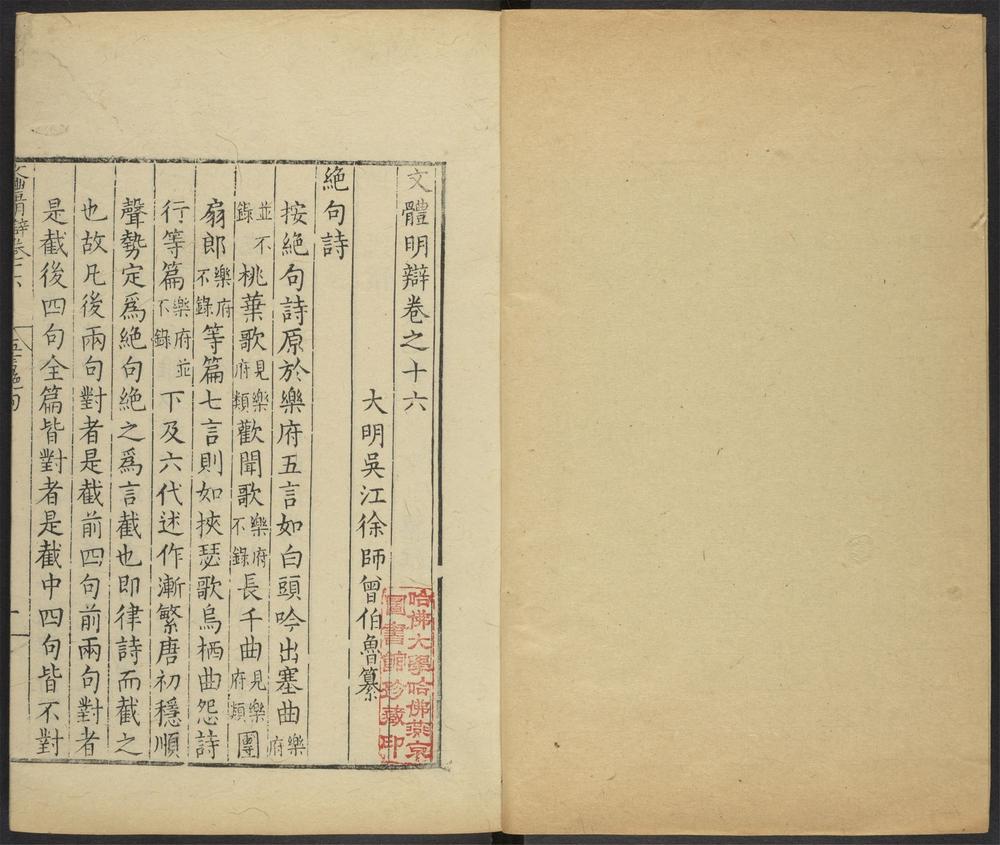 文體明辯卷之十六
大明吳江徐師曾伯魯纂
絕句詩
按絕句詩原於樂府五言如白頭吟出塞曲樂府
並不錄桃葉歌見樂府類歡聞歌樂府不錄長干曲見樂府類團
扇郎樂府不錄等篇七言則如挾瑟歌烏栖曲怨詩
行等篇樂府並不錄下及六代述作漸繁唐初穩順
聲勢定爲絕句絕之爲言截也即律詩而截之
也故凡後兩句對者是截前四句前兩句對者
是截後四句全篇皆對者是截中四句皆不對
哈佛大學哈佛燕京
圖書館珍藏印